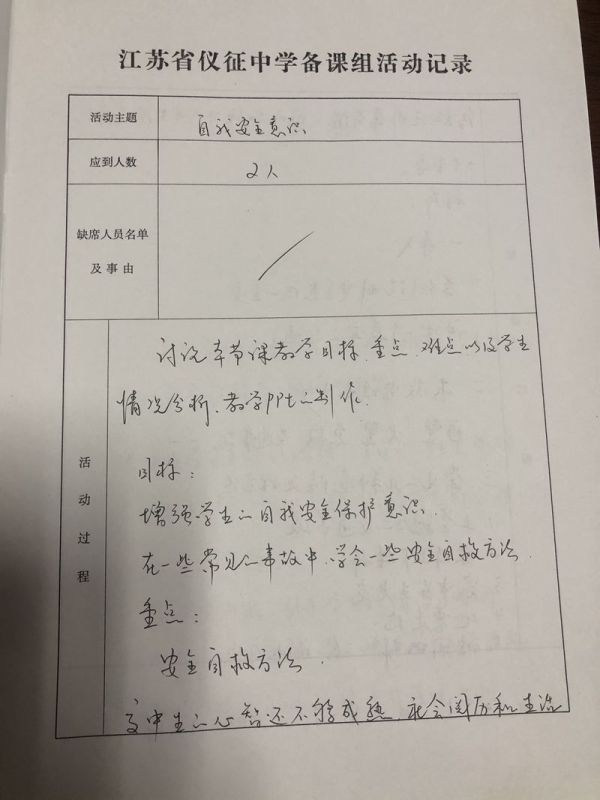 江苏省仪征中学备课组活动记录
活动主题
自我安全意识
应到人数
2人
缺席人员名单
及事由
活动过程
讨论本节课教学目标、重点、难点以及学生
情况分析、教学PPt的制作.
目标：
增强学生的自我安全保护意识.
在一些常见的事故中，学会一些安全自救方法.
重点：
安全自救方法.
高中生的心智还不够成熟，社会阅历和生活